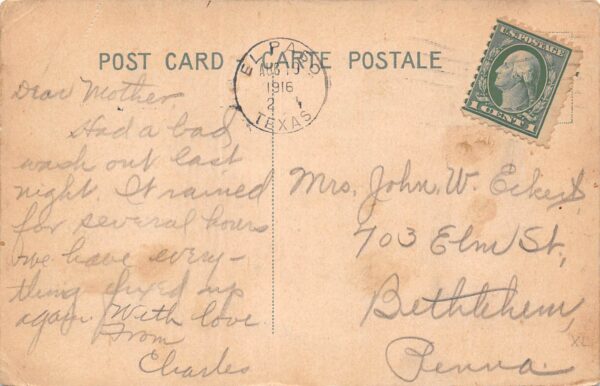 POST CARD - CARTE POSTALE
EL PASO
AUG 15
1916
2
TEXAS
U.S. POSTAGE
1 CENT 1
Dear Mother
Had a bad
wash out last
night. It rained
for several hours
we have every-
thing fixed up
again. With love
From
Charles
Mrs. John. W. Eckert,
703 Elm St,
Bethlehem,
Penna.
XL